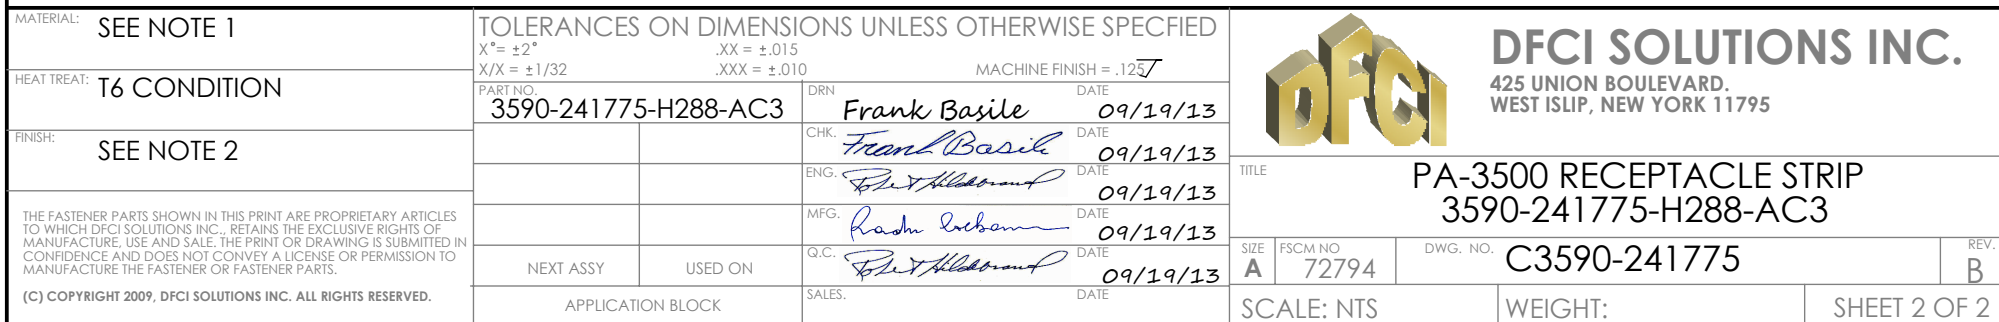 MATERIAL: SEE NOTE 1
HEAT TREAT: T6 CONDITION
FINISH: SEE NOTE 2
THE FASTENER PARTS SHOWN IN THIS PRINT ARE PROPRIETARY ARTICLES
TO WHICH DFCI SOLUTIONS INC., RETAINS THE EXCLUSIVE RIGHTS OF
MANUFACTURE, USE AND SALE. THE PRINT OR DRAWING IS SUBMITTED IN
CONFIDENCE AND DOES NOT CONVEY A LICENSE OR PERMISSION TO
MANUFACTURE THE FASTENER OR FASTENER PARTS.
(C) COPYRIGHT 2009, DFCI SOLUTIONS INC. ALL RIGHTS RESERVED.
TOLERANCES ON DIMENSIONS UNLESS OTHERWISE SPECFIED
X°= ±2° .XX = ±.015
X/X = ±1/32 .XXX = ±.010 MACHINE FINISH = .125
PART NO. 3590-241775-H288-AC3
NEXT ASSY USED ON
APPLICATION BLOCK
DRN Frank Basile DATE 09/19/13
CHK. Frank Basile DATE 09/19/13
ENG. Robert Hildebrand DATE 09/19/13
MFG. DATE 09/19/13
Q.C. Robert Hildebrand DATE 09/19/13
SALES. DATE
DFCI
DFCI SOLUTIONS INC.
425 UNION BOULEVARD.
WEST ISLIP, NEW YORK 11795
TITLE PA-3500 RECEPTACLE STRIP
3590-241775-H288-AC3
SIZE A FSCM NO 72794 DWG. NO. C3590-241775 REV. B
SCALE: NTS WEIGHT: SHEET 2 OF 2